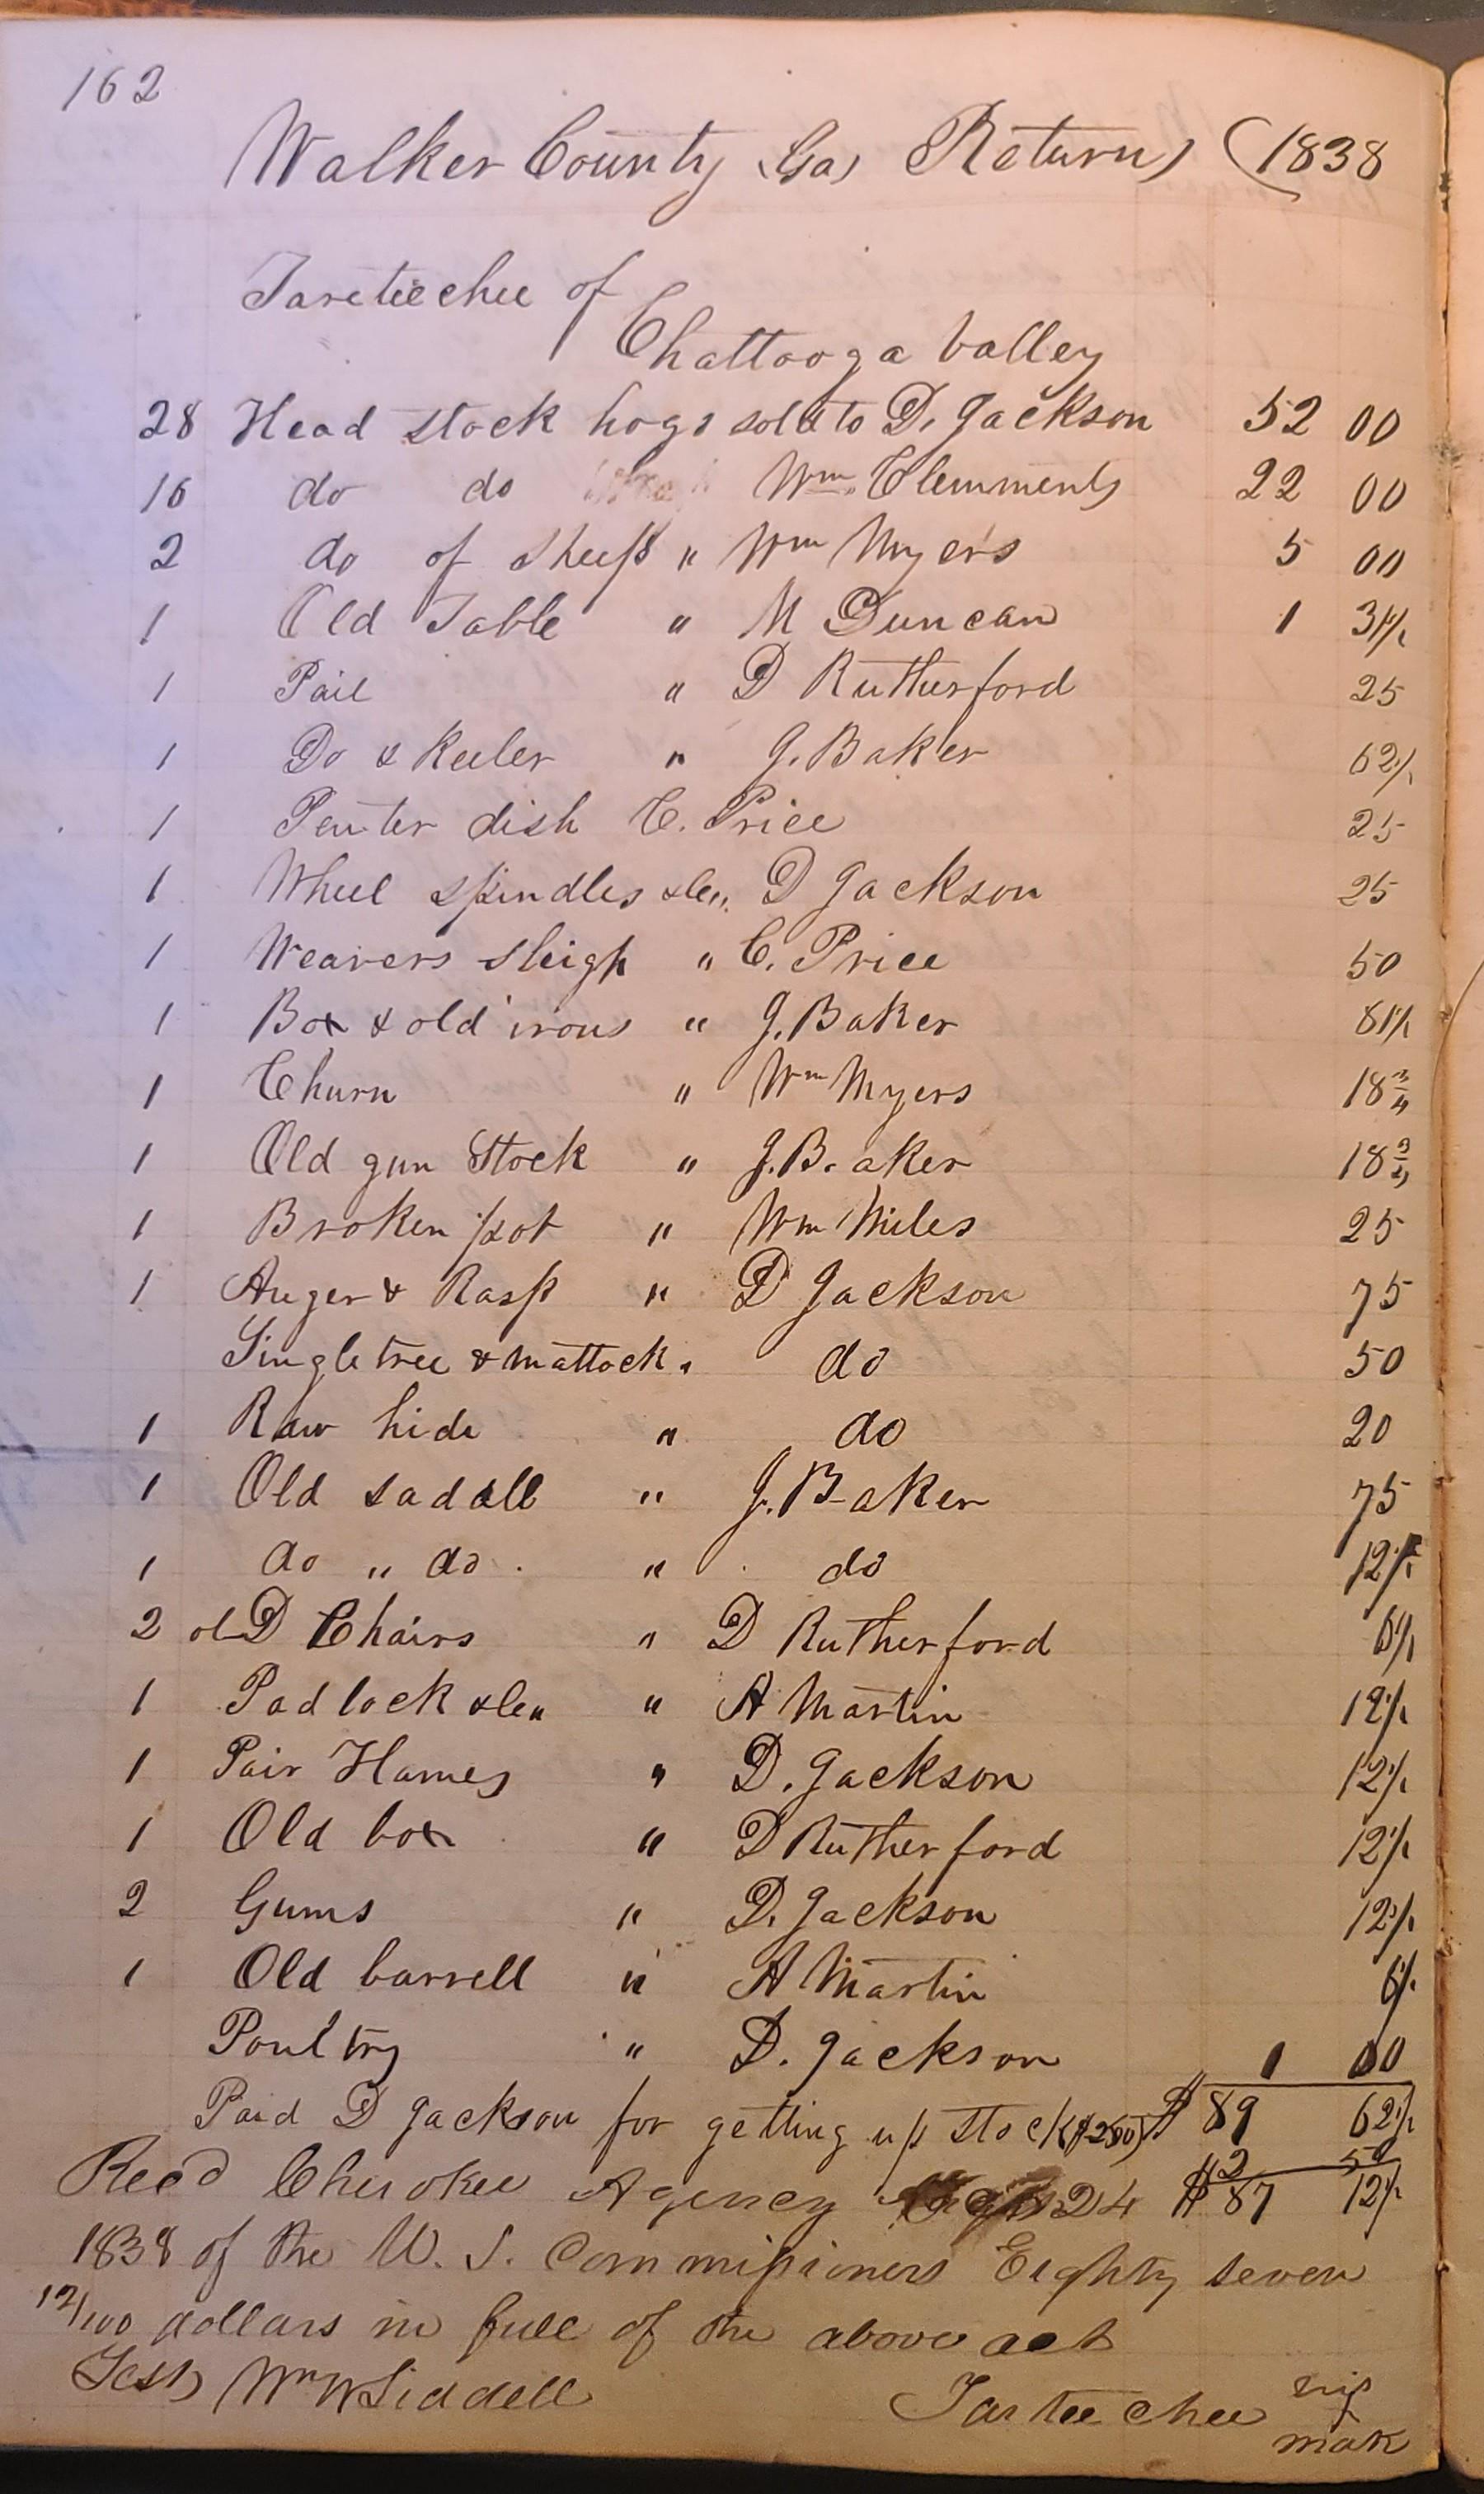 162
Walker County (Ga) Returns (1838
Tareteechee of
Chattooga Valley
28 Head stock hogs sold to D. Jackson 52 00
16 do do Wm. Clemments 22 00
2 do of Sheep " Wm Myers 5 00
1 Old Table " M Duncan 1 31 1/4
1 Pail " D Rutherford 25
1 Do & Keeler " J. Baker 62 1/2
1 Peuter dish C. Price 25
1 Wheel spindles &c " D Jackson 25
1 Weavers sleigh " C. Price 50
1 Box & old irons " J. Baker 81 1/4
1 Churn " Wm Myers 18 3/4
1 Old gun Stock " J. Baker 18 3/4
1 Broken pot " Wm Miles 25
1 Auger & Rasp " D Jackson 75
Singletree & mattock " do 50
1 Raw hide " do 20
1 Old saddll " J. Baker 75
1 do " do " do 12 1/2
2 olD Chairs " D Rutherford 6 1/4
1 Padlock &c " " A Martin 12 1/2
1 Pair Hames " D. Jackson 12 1/2
1 Old box " D Rutherford 12 1/2
2 Gums " D. Jackson 12 1/2
1 Old barrell " A Martin 6 1/4
Poultry " D. Jackson 1 00
Paid D Jackson for getting up stock ($2.50) $ 89 62 1/2
" 2 50
Recd Cherokee Agency 24 $ 87 12 1/2
1838 of the U. S. Commissioners Eighty seven
12/100 dollars in full of the above act
Test) Wm W Liddell
Tarteechee his
x
mark